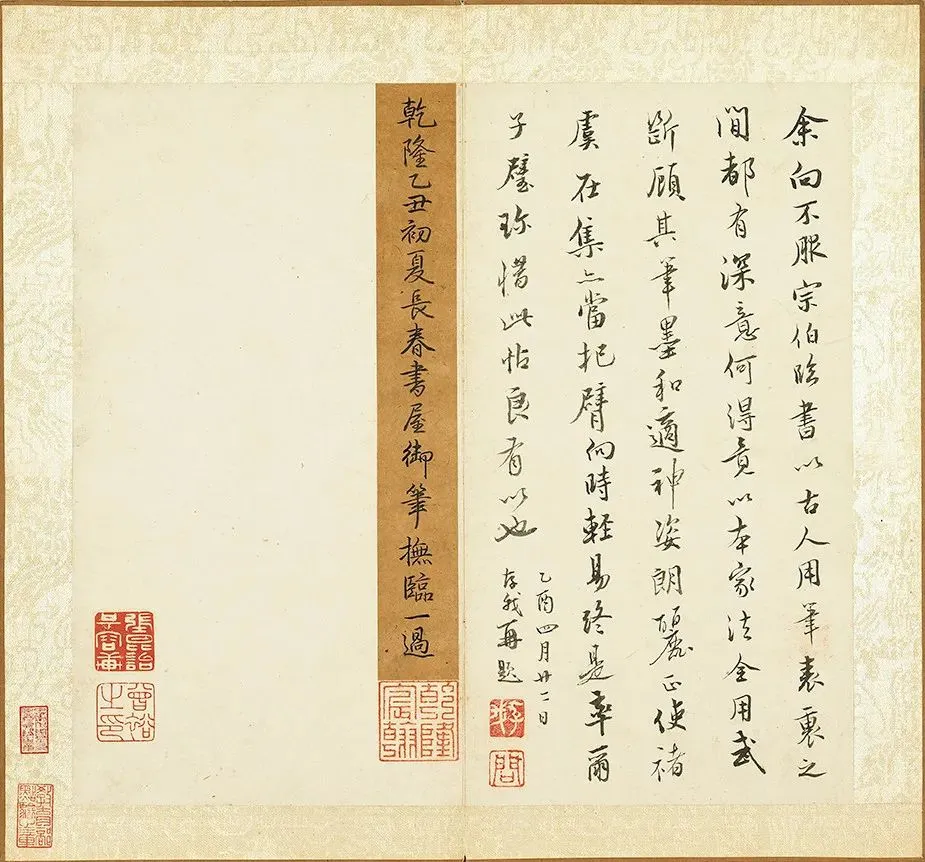 余向不服宗伯臨書以古人用筆表裏之
間都有深意何得竟以本家法全用武
斷顧其筆墨和適神姿朗麗正使褚
虞在集亦當把臂向時輕易終是率爾
子璧珎惜此帖良有以也
乙酉四月廿二日
存我再題
乾隆乙丑初夏長春書屋御筆撫臨一過
乾隆宸翰
曾裕之印
教育部點驗之章